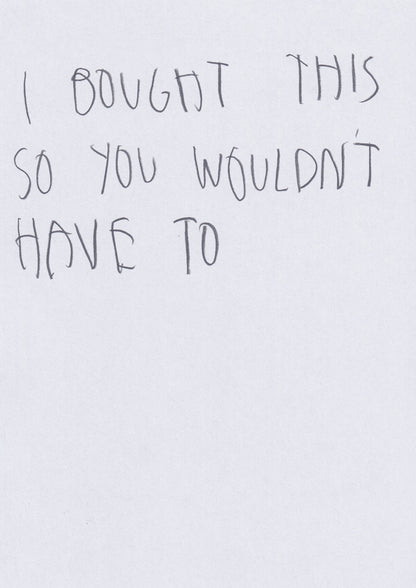 I BOUGHT THIS
SO YOU WOULDN'T
HAVE TO